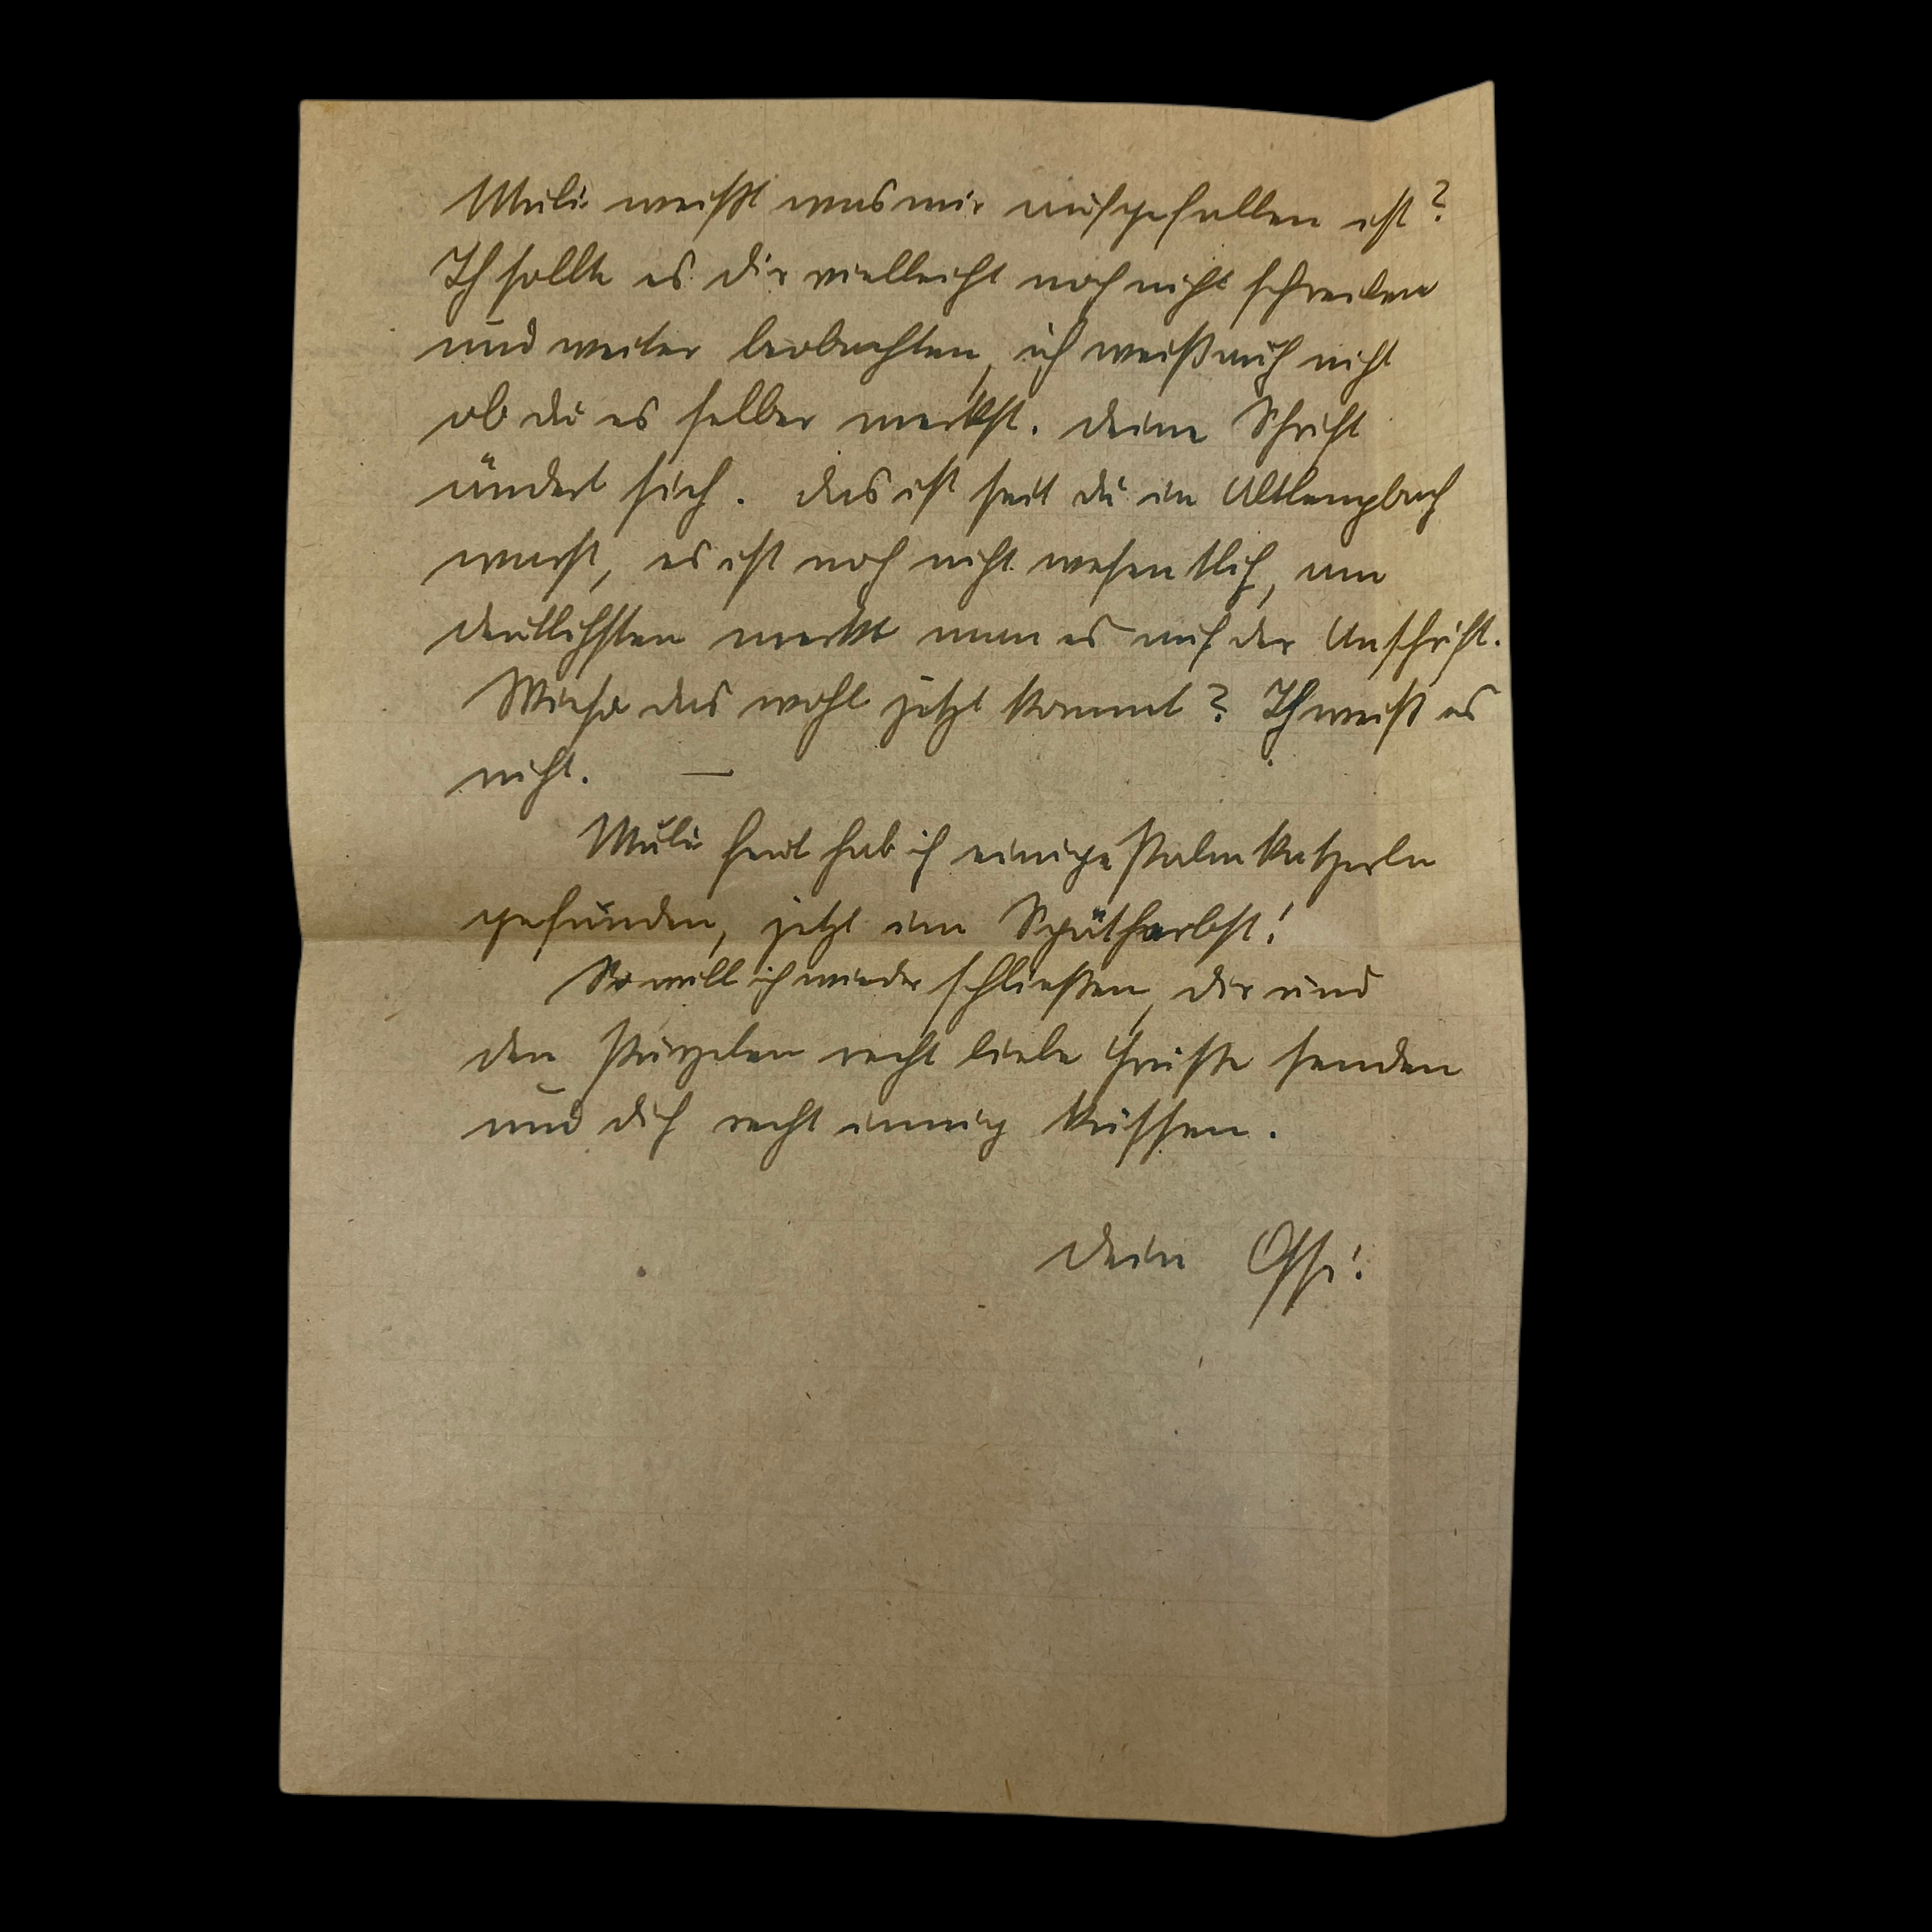 Muli weißt was mir aufgefallen ist?
Ich sollte es dir vielleicht noch nicht schreiben
und weiter beobachten, ich weiß auch nicht
ob du es selber merkst. Deine Schrift
ändert sich. Das ist seit du in Altlengbach
warst, es ist noch nicht wesentlich, am
deutlichsten merkt man es auf der Anschrift.
Wieso das wohl jetzt kommt? Ich weiß es
nicht. —
Muli heut hab ich einige Palmkatzerln
gefunden, jetzt im Spätherbst!
So will ich wieder schließen, dir und
den Purzeln recht liebe Grüße senden
und dich recht innig küssen.
Dein Ossi!